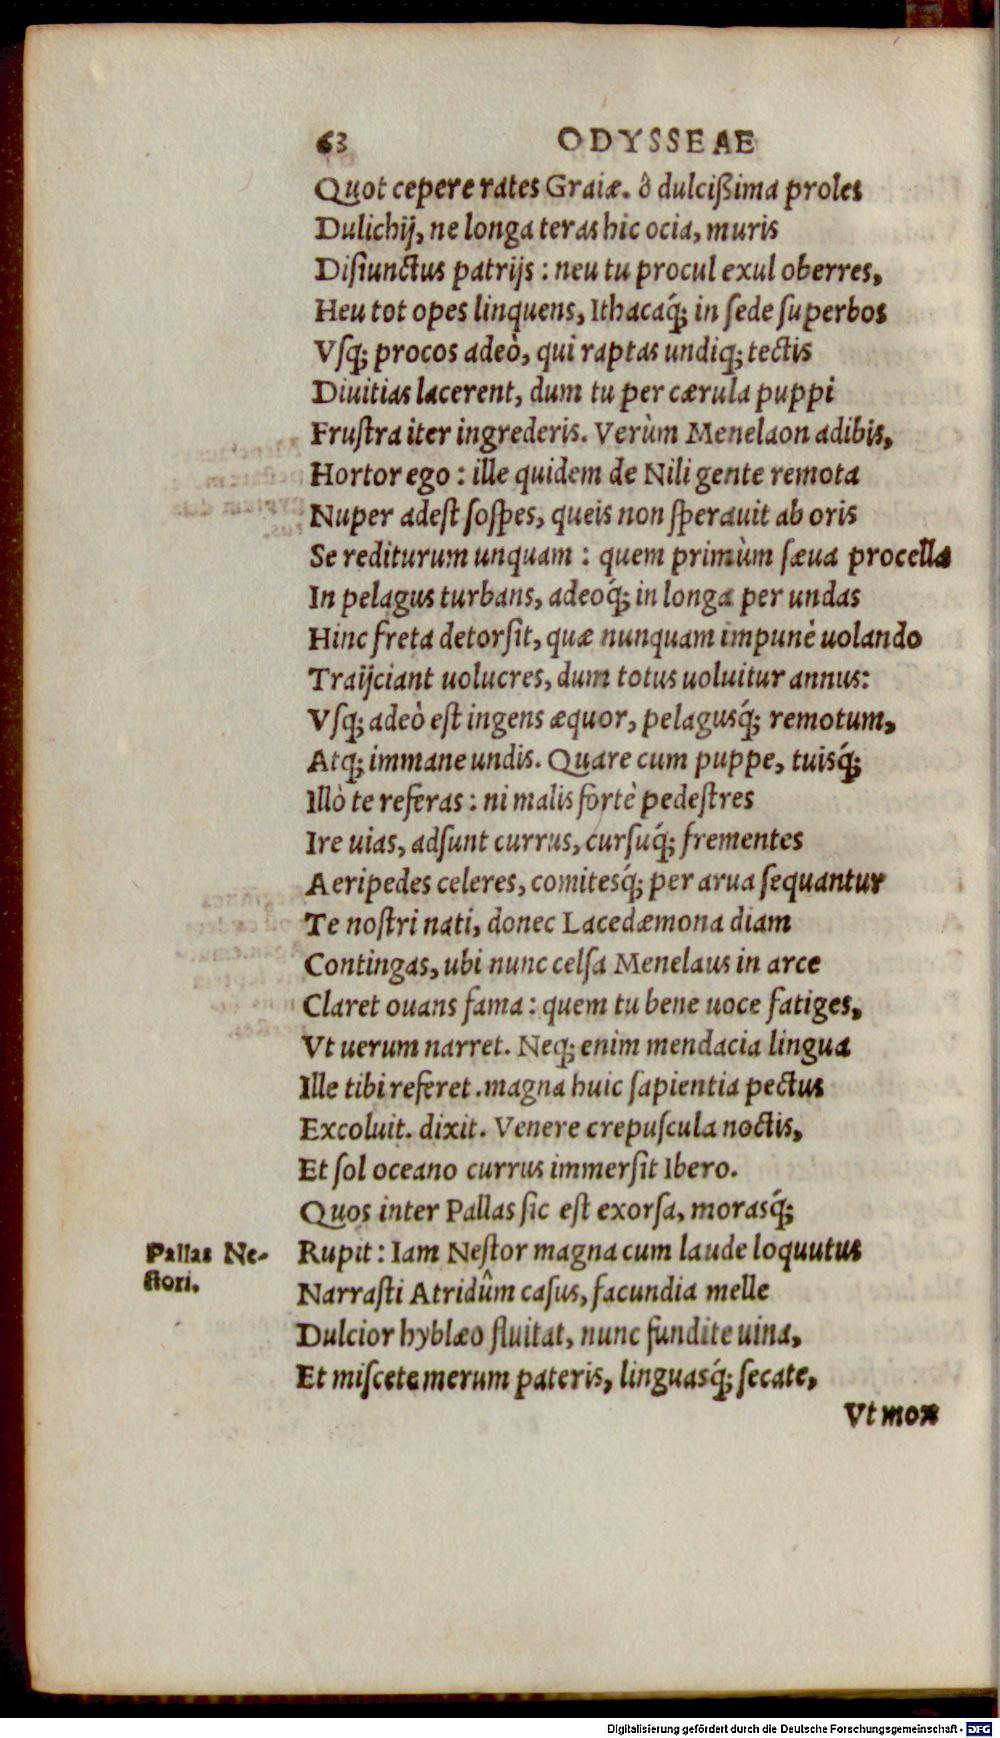 63 ODYSSEAE
Quot cepere rates Graiæ. ô dulcißima proles
Dulichij, ne longa teras hic ocia, muris
Disiunctus patrijs : neu tu procul exul oberres,
Heu tot opes linquens, Ithacaq́; in sede superbos
Vsq; procos adeò, qui raptas undiq; tectis
Diuitias lacerent, dum tu per cærula puppi
Frustra iter ingrederis. Verùm Menelaon adibis,
Hortor ego : ille quidem de Nili gente remota
Nuper adest sospes, queis non sperauit ab oris
Se rediturum unquam : quem primùm sæua procella
In pelagus turbans, adeoq́; in longa per undas
Hinc freta detorsit, quæ nunquam impunè uolando
Traijciant uolucres, dum totus uoluitur annus:
Vsq; adeò est ingens æquor, pelagusq́; remotum,
Atq; immane undis. Quare cum puppe, tuisq́;
Illò te referas : ni malis fortè pedestres
Ire uias, adsunt currus, cursuq́; frementes
Aeripedes celeres, comitesq́; per arua sequantur
Te nostri nati, donec Lacedæmona diam
Contingas, ubi nunc celsa Menelaus in arce
Claret ouans fama : quem tu bene uoce fatiges,
Vt uerum narret. Neq; enim mendacia lingua
Ille tibi referet . magna huic sapientia pectus
Excoluit. dixit. Venere crepuscula noctis,
Et sol oceano currus immersit Ibero.
Quos inter Pallas sic est exorsa, morasq́;
Pallas Ne-
stori.
Rupit : Iam Nestor magna cum laude loquutus
Narrasti Atridûm casus, facundia melle
Dulcior hyblæo fluitat, nunc fundite uina,
Et miscete merum pateris, linguasq́; secate,
Vt mox
Digitalisierung gefördert durch die Deutsche Forschungsgemeinschaft - DFG